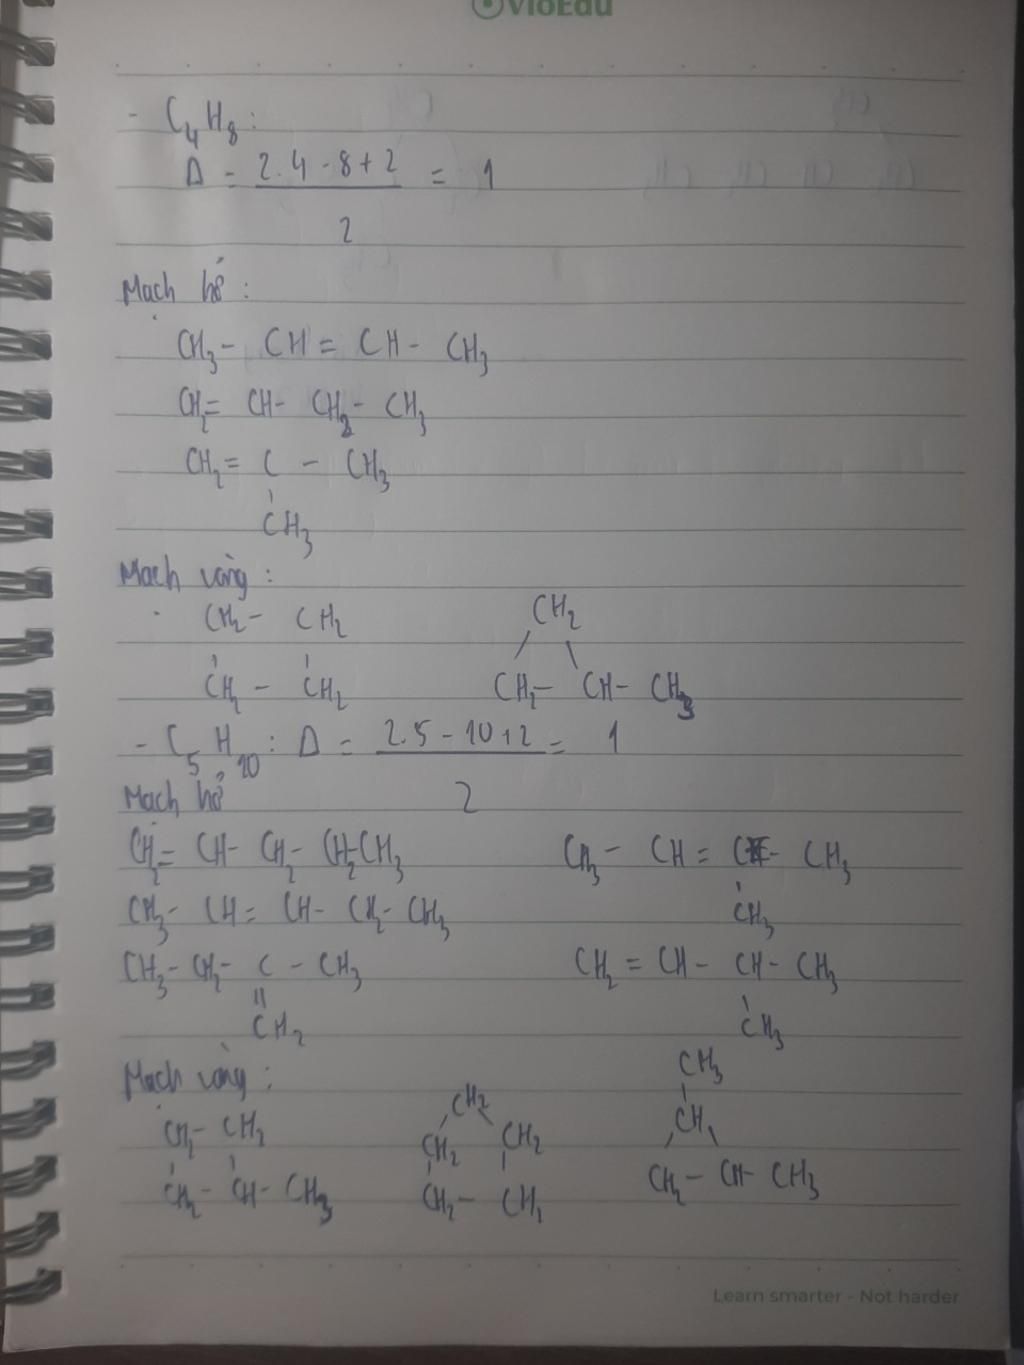 VioEdu
- C4H8:
Δ = 2.4 - 8 + 2 = 1
2
Mạch hở:
CH3- CH = CH- CH3
CH2= CH- CH2- CH3
CH2= C - CH3
CH3
Mạch vòng:
CH2
CH2- CH2
CH2 - CH2 CH2- CH- CH3
- C5H10: Δ = 2.5 - 10 + 2 = 1
Mạch hở 2
CH2= CH- CH2- CH2-CH3 CH3- CH = C- CH3
CH3- CH= CH- CH2- CH3 CH3
CH3- CH2- C - CH3 CH2 = CH- CH- CH3
CH2 CH3
Mạch vòng: CH3
CH2- CH2 CH2 CH
CH2 CH2
CH2- CH- CH3 CH2- CH2 CH2- CH- CH3
Learn smarter - Not harder